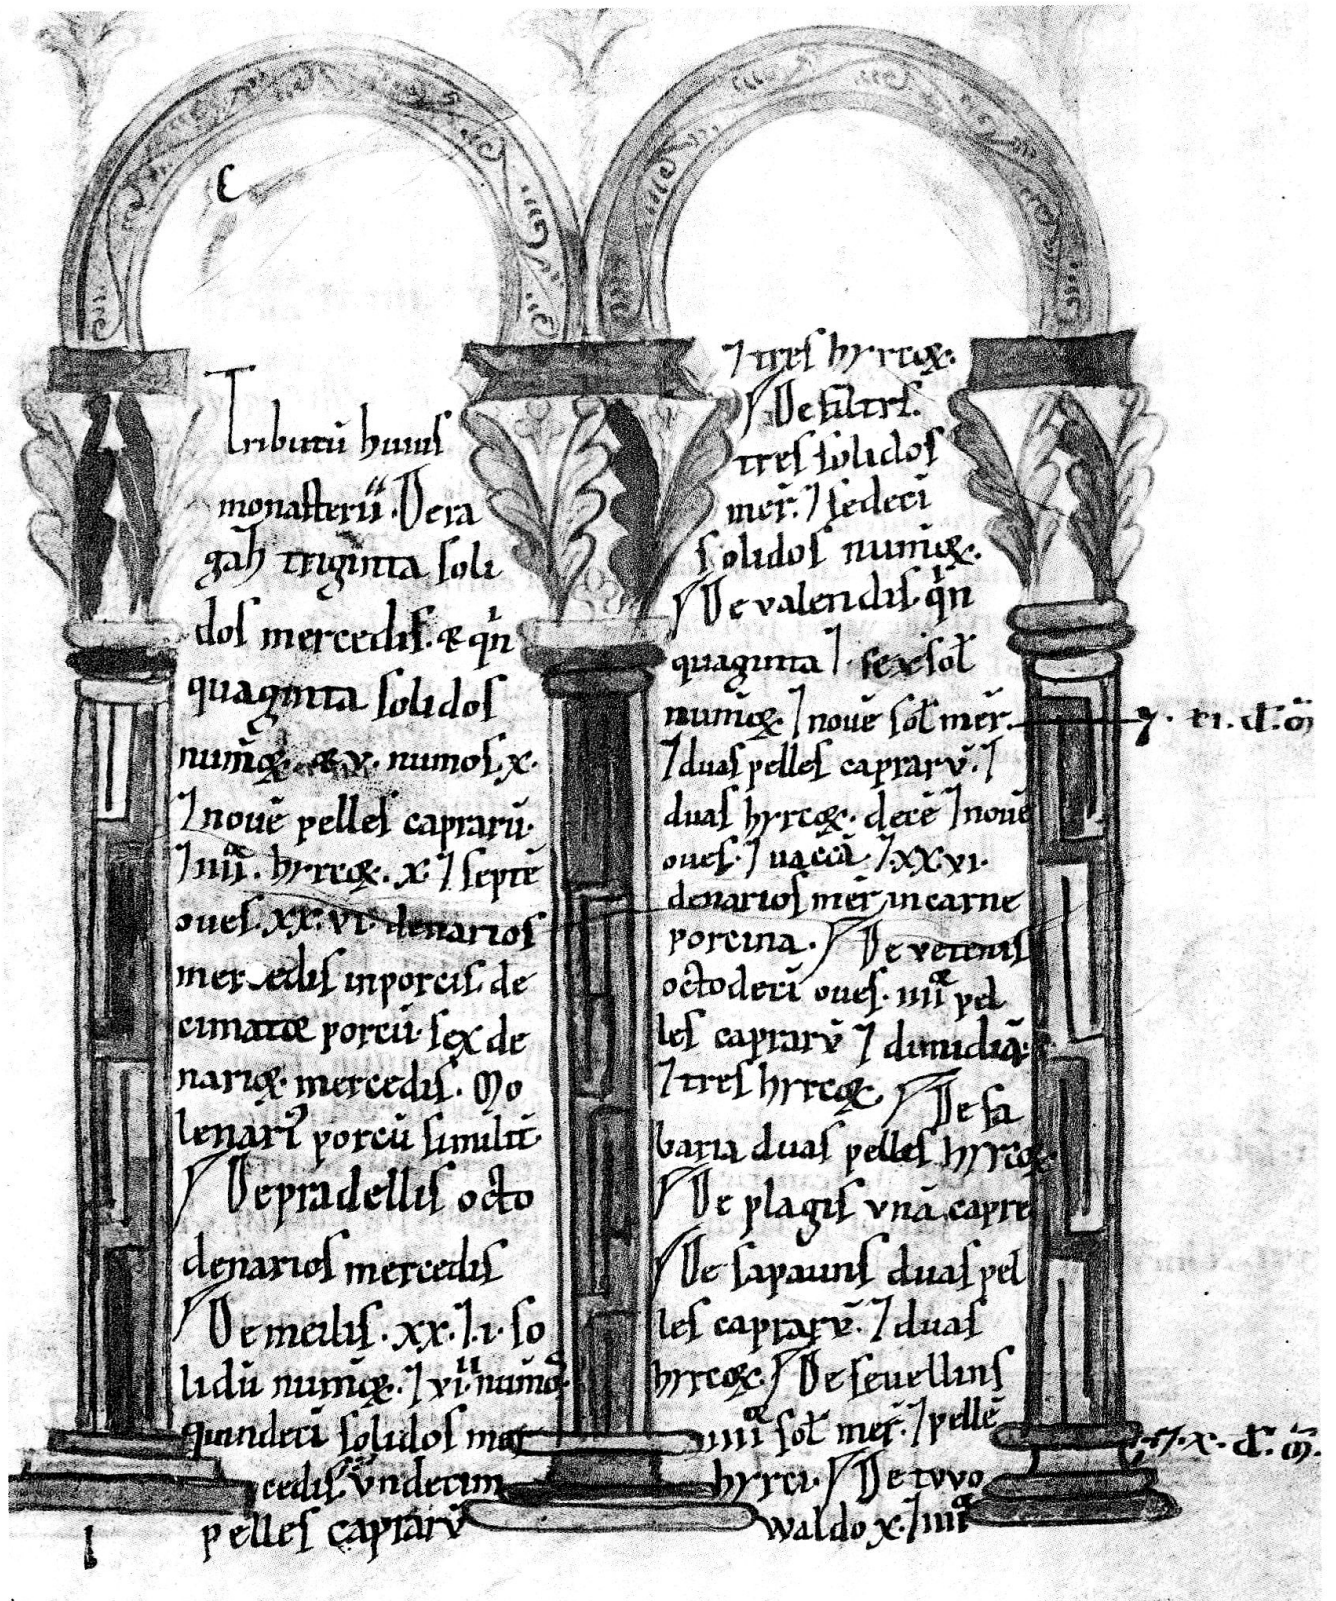 Tributū huius
monasterii. De ra
gāh triginta soli
dos mercedis. & qⁱn
quaginta solidos
num̄oꝝ. & v. numos x.
⁊ novē pelles caprarū.
⁊ iiiiᵒʳ. hyrcoꝝ. x. ⁊ septē
oves. xx. vi. denarios
mercedis in porcis. de
cimatoe porcū. sex de
narioꝝ. mercedis. Mo
lenarꝰ porcū similit̄.
De pradellis octo
denarios mercedis
De meilis. xx. ⁊. i. so
lidū num̄oꝝ. ⁊ vi. numoꝰ
quindeci solidos mer
cedis. undecim
pelles caprarū
⁊ tres hyrcoꝝ.
De filtrs.
tres solidos
mer̄. ⁊ sedeci
solidos num̄oꝝ.
De valendis. qⁱn
quaginta ⁊. sex sol̄
num̄oꝝ. ⁊ novē sol̄ mer̄.
⁊ duas pelles caprarū. ⁊
duas hyrcoꝝ. decē ⁊ novē
oves. ⁊ vaccā. ⁊. xx vi.
denarios mer̄ in carne
porcina. De vetenis
octodeci oves. iiiiᵒʳ pel
les caprarū ⁊ dimidiā.
⁊ tres hyrcoꝝ. De fa
baria duas pelles hyrcoꝝ
De plagis unā capre
De sapauns duas pel
les caprarū. ⁊ duas
hyrcoꝝ. De sevellins
iiiiᵒʳ sol̄ mer̄. ⁊ pellē
hyrci. De tvvo
waldo x. ⁊ iiiiᵒʳ